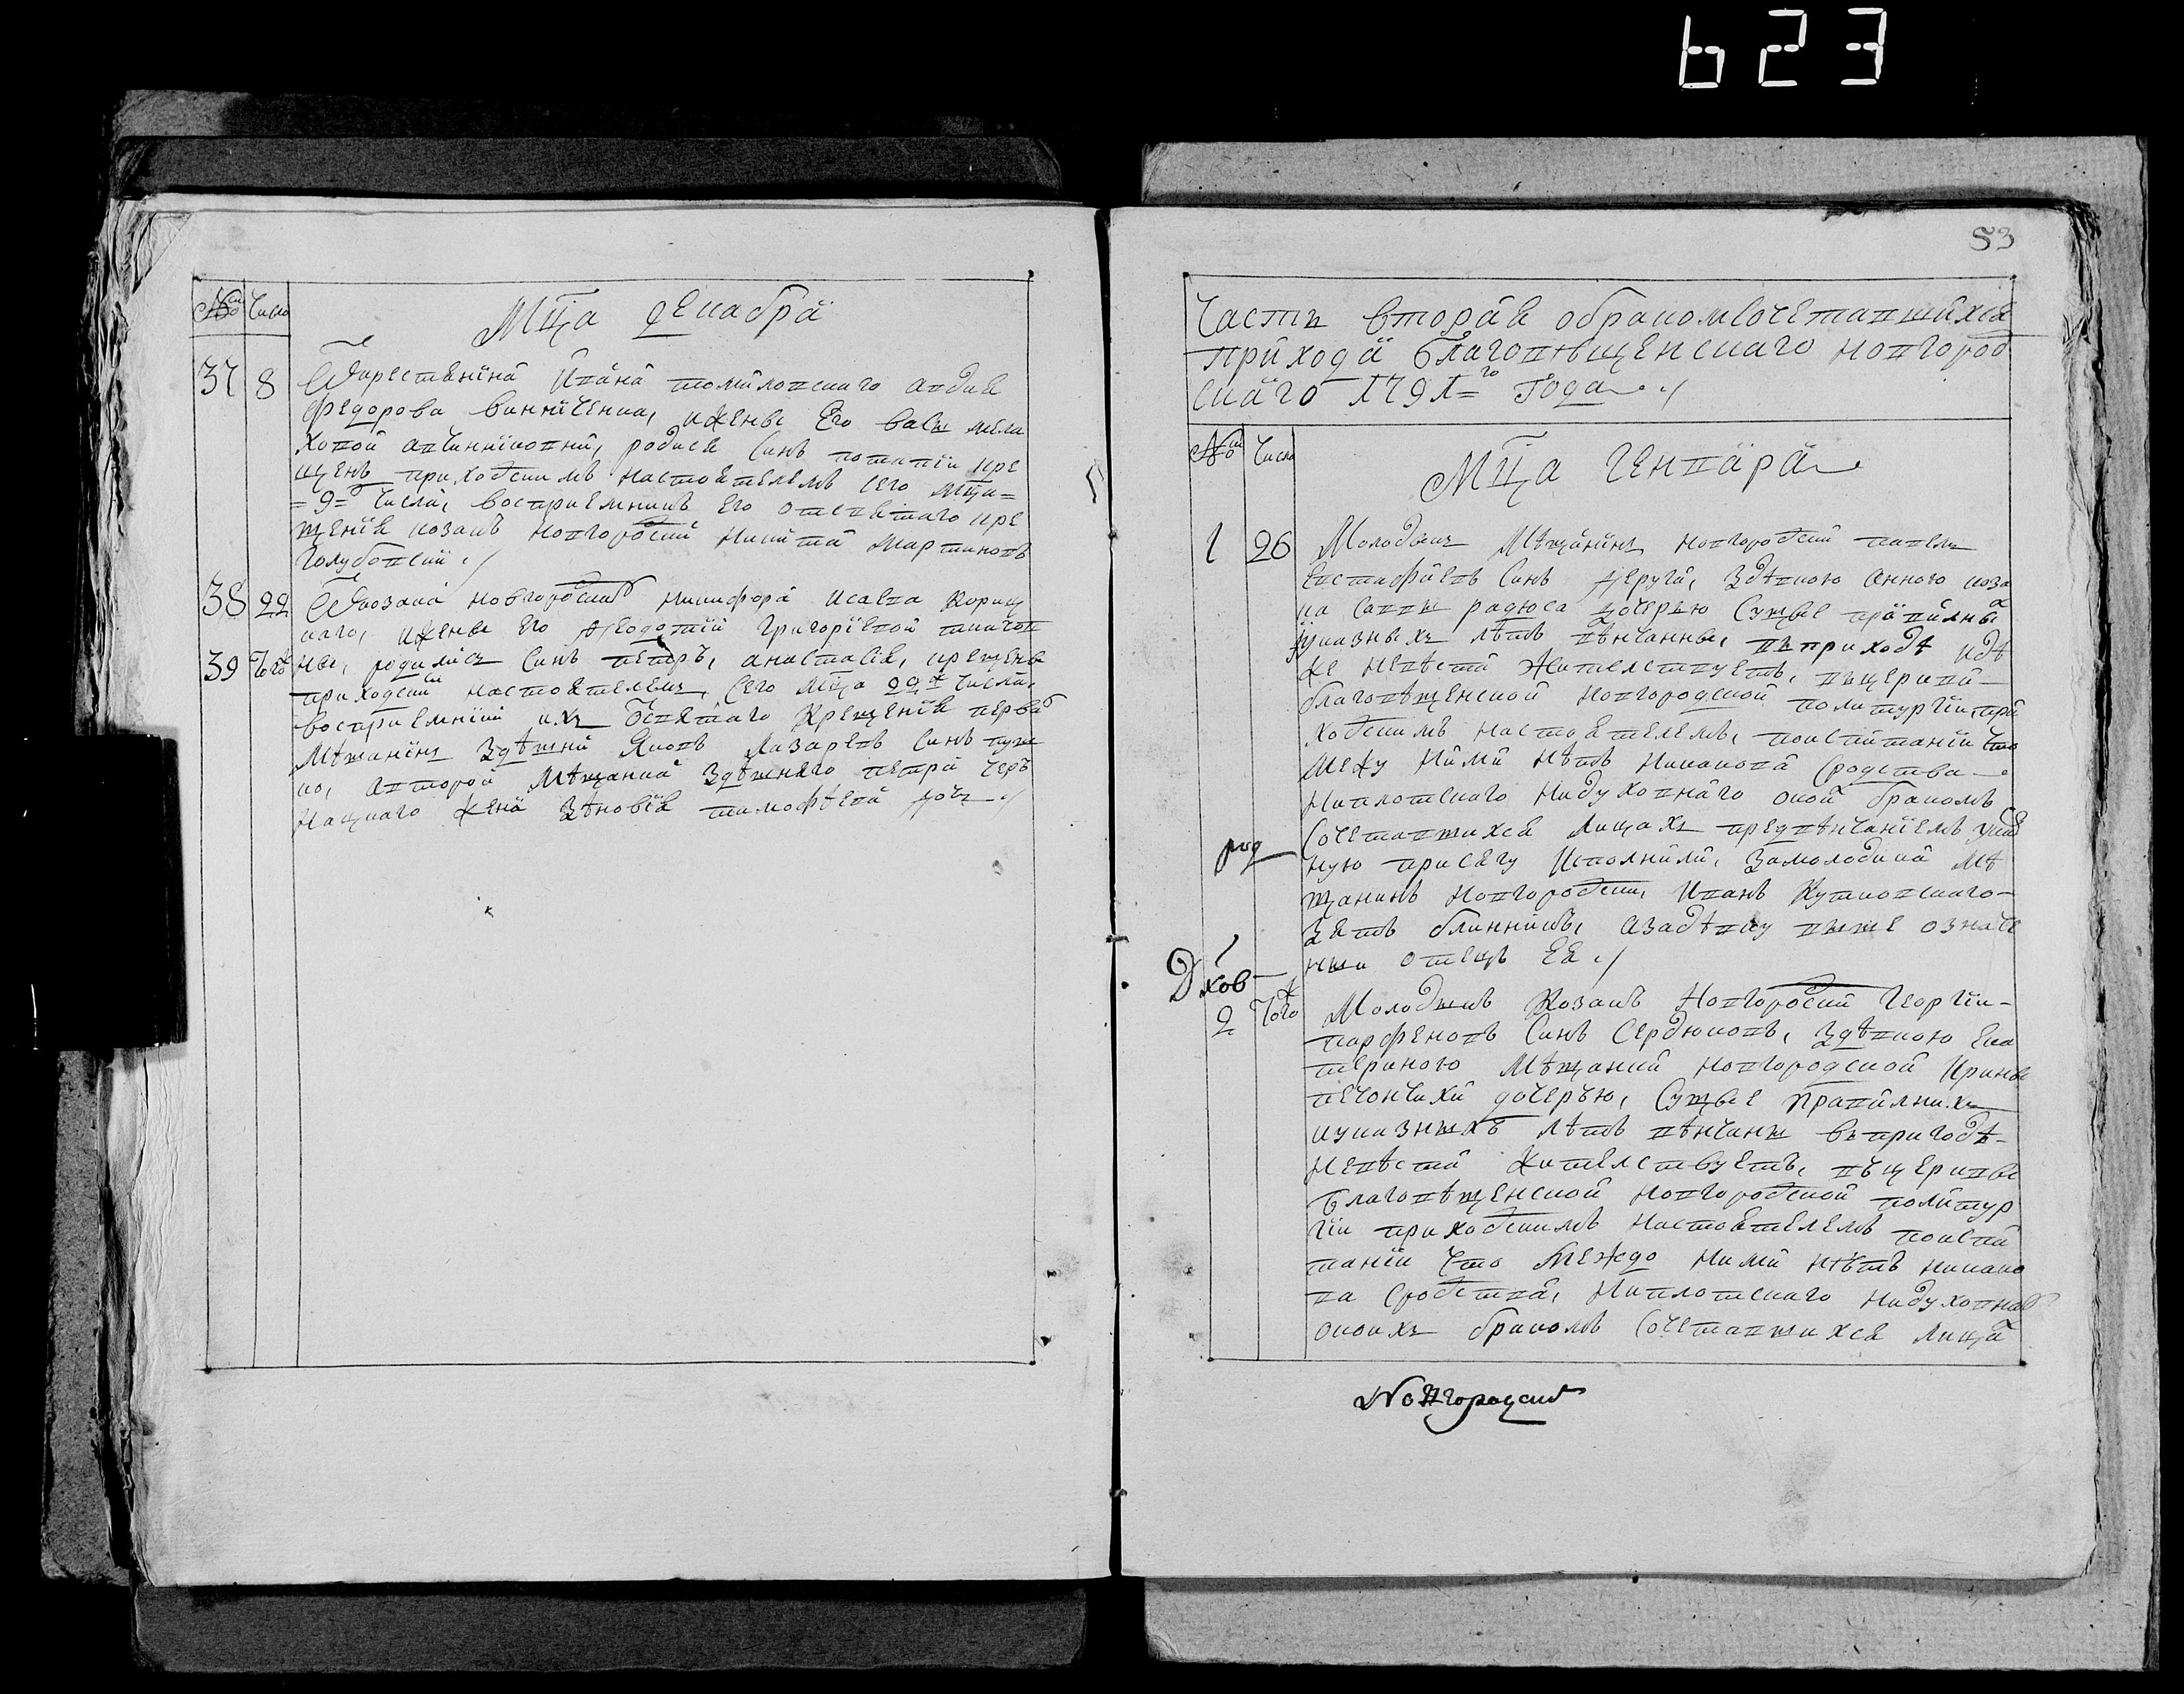 623
№ Число
Мца декабря
37 8 Uкрестянина Ивана томиловскаго авдия
федорова винниченка, ижены Его васы мела
ховой авчинниковни, родися Синъ потапіи кре
щенъ приходскимъ настоятелемъ сего Мца=
=9=г числа, восприемникъ Его отсвятаго кре
щенія козакъ новгородскій никита мартиновъ
Голубовский ./
38 22 Uкозака новгородскаго никифора исаева
каго, ижены его Феодотіи григоріевой
39 Того нве, родились Синъ петръ, анастасія, крещены
приходским настоятелемъ, Сего Мца 22 г числа,
восприемники ихъ Оsвятаго Крещенія перва
Мѣщанинъ Здѣшній Яковъ Лазаревъ Синъ
ко, авторой Мѣщанки Здѣшняго петра черъ
нацкаго Жена Зѣновія тимофѣева дочь ./
53
Части вторая обракомсочетавшихся
прихода благовѣщенскаго новгород
скаго 1791=го Года ./
№ Число
Мца Генваря
1 26 Молодикъ Мѣщанинъ новгородский павелъ
Евстафиевъ Синъ деруга, Здѣвкою Анною коза
ка Саввы радюка дочерью Сущые правилны
куказныхъ лѣтъ вѣнчанны, въприходѣ идѣ
же невѣста Жителствуетъ, въцеркви
благовѣщенской новгородской политургіи, при
ходскимъ настоятелемъ, поиспитаніи что
Межу Ними нѣтъ никакова сродства
Ниплотскаго нидуховнаго окой бракомъ
Сочетавшихся лицахъ предвѣнчаніемъ указ
род
ную присягу исполнили, Замолодика мѣ
щанинъ новгородский, Иванъ Кутковскаго
Зять блинникъ, азадѣвку выше означе
нны отецъ ЕЯ ./
Дхов
2 Того Молодикъ Козакъ Новгородский георгіи
парфеновъ Синъ Сердюковъ, Здѣвкою Ека
териною Мѣщанки новгородской Ирины
печончихи дочерью, Сущые правилнихъ
иуказныхъ лѣтъ вѣнчаны въпригодѣ
невѣста Жителствуетъ, въцеркви
благовѣщенской новгородской политур
гіи приходскимъ настоятелемъ поиспи
таніи что Междо ними нѣтъ никако
ва сродства, ниплотскаго нидуховнаго
окоихъ бракомъ Сочетавшихся лица
Новгородский